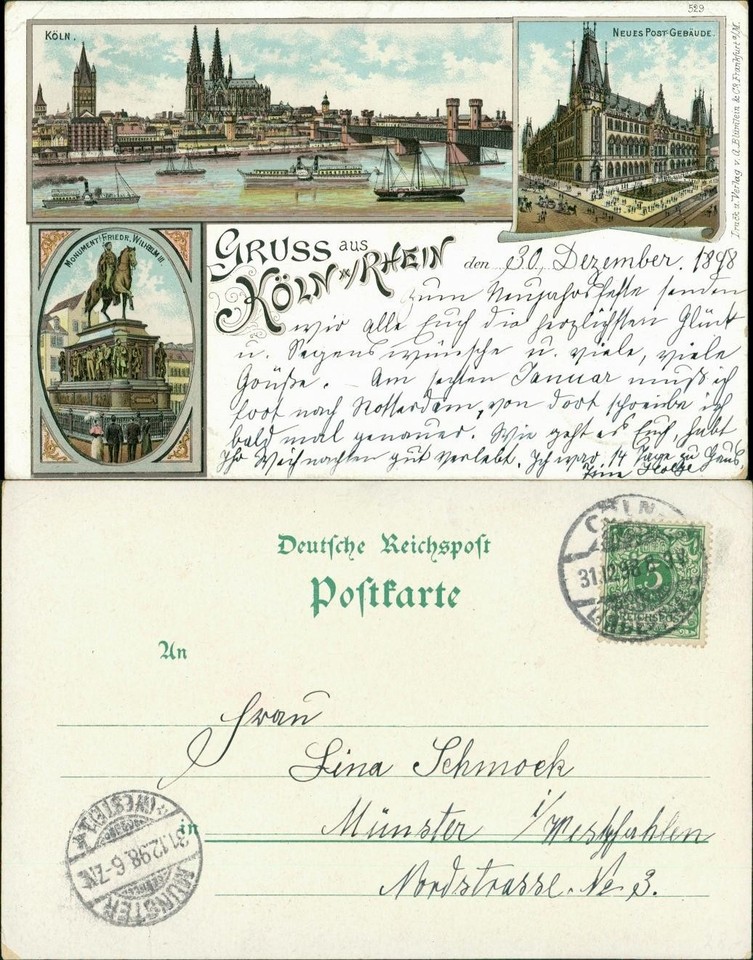 529
KÖLN.
NEUES POST-GEBÄUDE.
MONUMENT FRIEDR. WILHELM III.
GRUSS aus
KÖLN a/RHEIN
den 30. Dezember. 1898
Zum Neujahrsfeste senden
wir alle Euch die herzlichsten Glück
u. Segenswünsche u. viele, viele
Grüße. Am sechsten Januar muß ich
fort nach Rotterdam, von dort schreibe ich
bald mal genauer. Wie geht es Euch, habt
Ihr Weihnachten gut verlebt. Ich war 14 Tage zu Haus.
Druck u. Verlag v. A. Blümlein & Co. Frankfurt a/M.
Deutsche Reichspost
Postkarte
An
Frau
Lina Schmock
in Münster i/Westfahlen
Nordstrasse. No 3.
CÖLN
31.12.98
5
MÜNSTER
31.12.98. 6-7N.
(WESTF.)